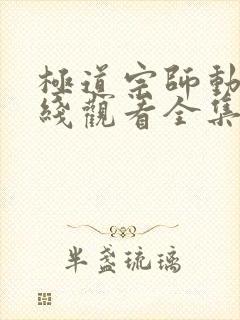 極道宗師動
綫觀看全集
半盞琉璃